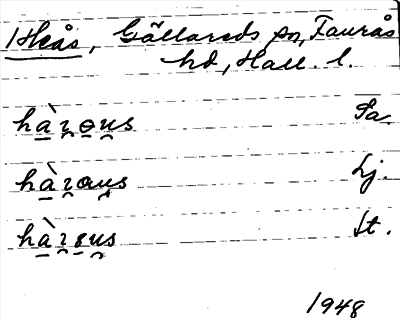 Heås, Gällareds sn, Faurås
hd, Hall. l.
hàꞛɵu̯s Sa.
hàꞛau̯s Lj.
St.
1948